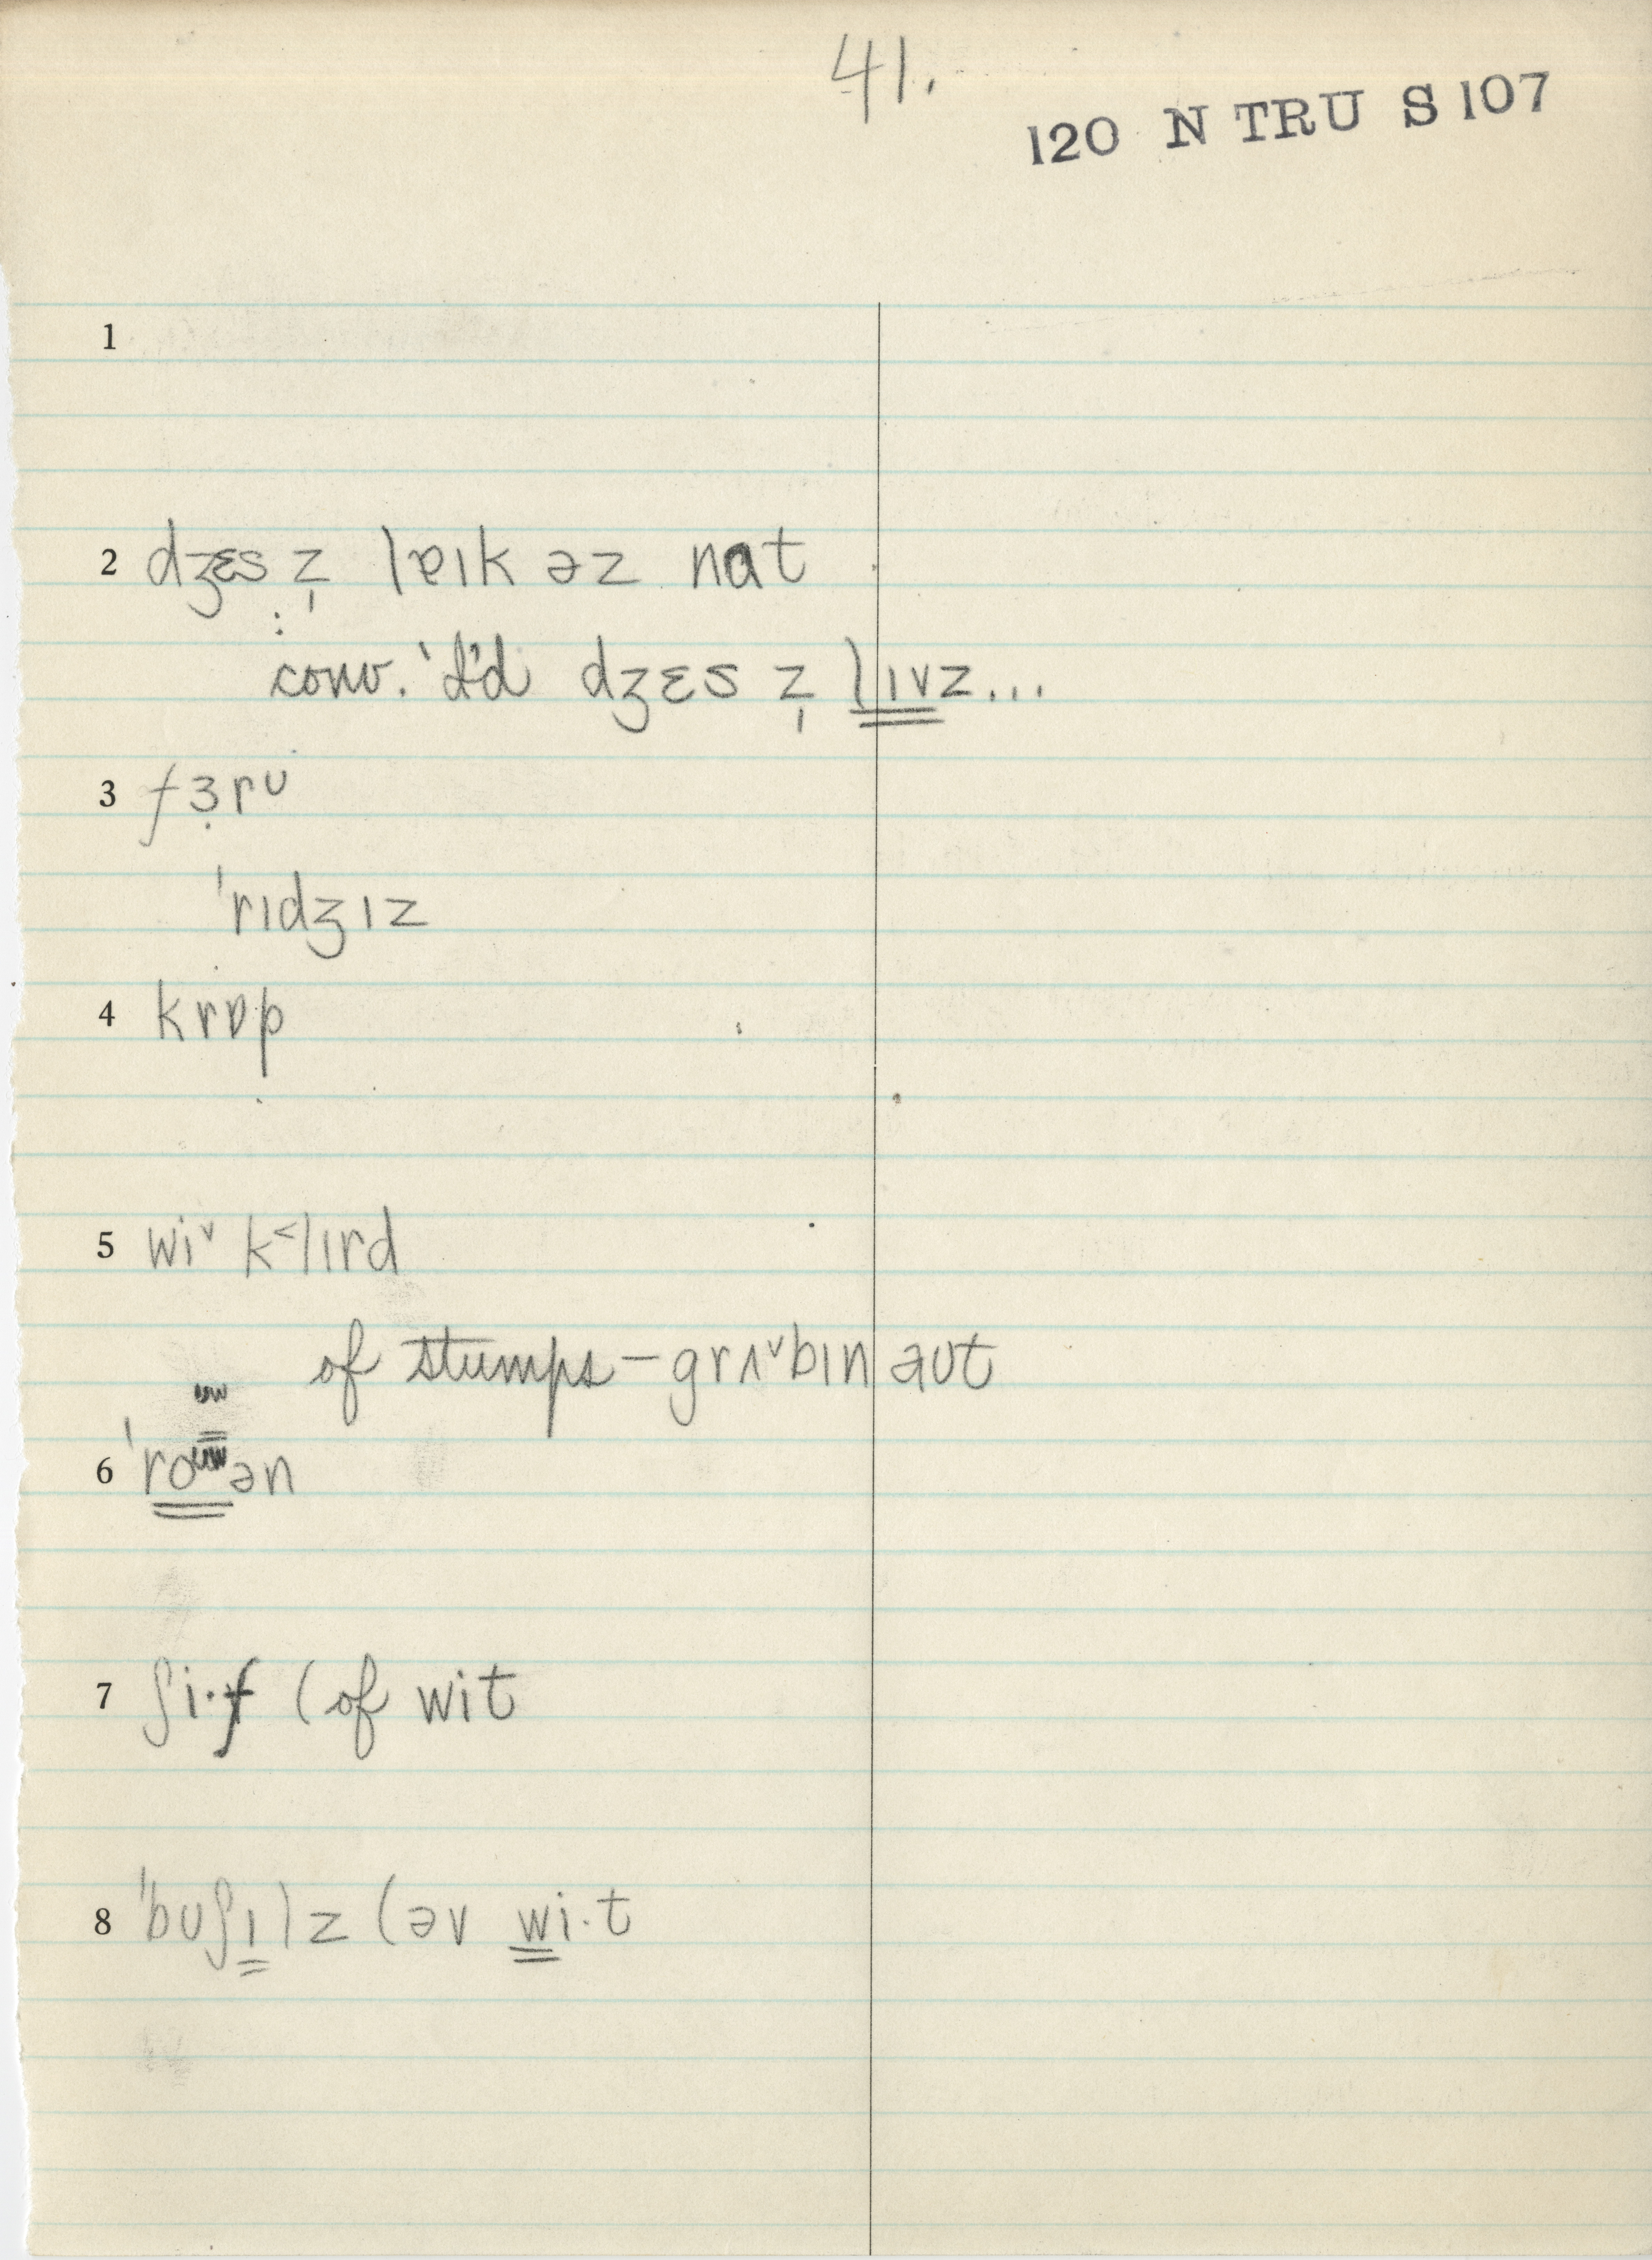 41.
120 N TRU S 107
1
2 dʒɛs z̩ lɐɪk əz nat
: conv. 'I'd dʒɛs z̩ lɪvz...
3 fɜ̣rʊ
'rɪdʒɪz
4 krɒp
5 wi˅ k˂lɪrd
of stumps – grʌ˅bɪn aʊt
6 'roʊən
7 ʃi·f (of wit
8 'bʊʃɪlz (əv wi·t